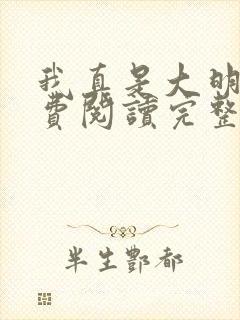 我真是大明
費閱讀完整
半生酆都